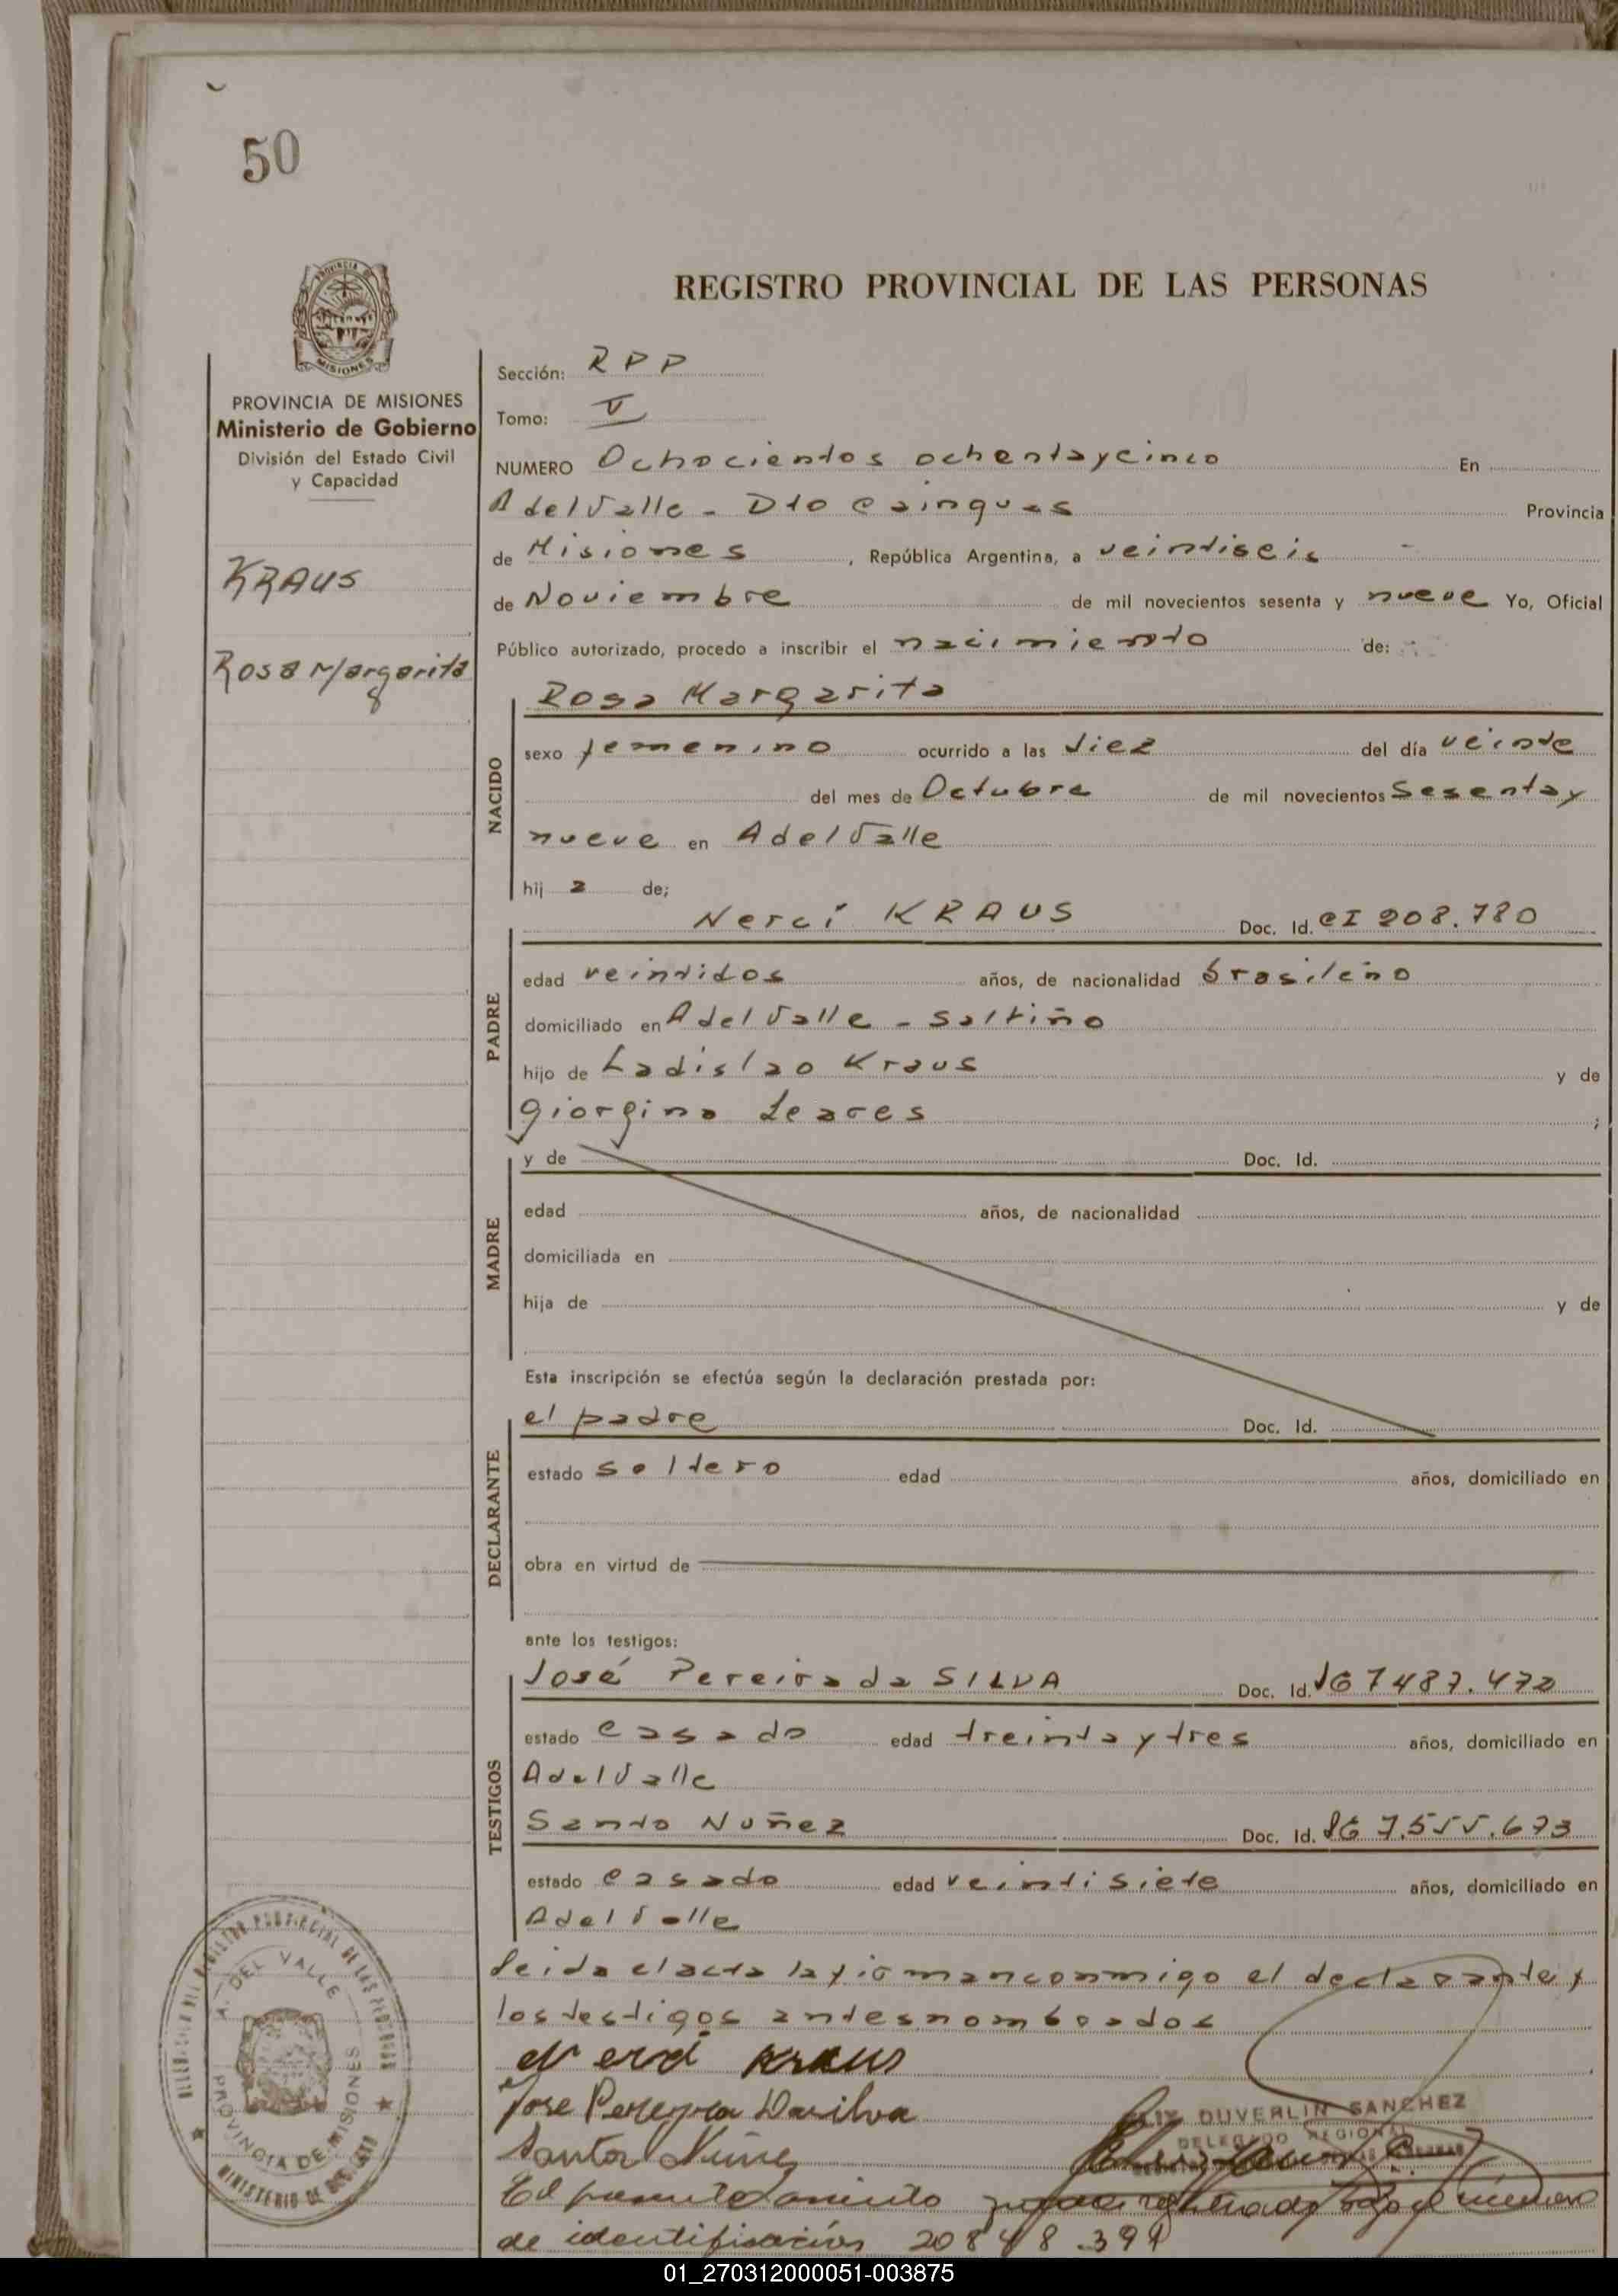 50
REGISTRO PROVINCIAL DE LAS PERSONAS
PROVINCIA DE MISIONES
Ministerio de Gobierno
División del Estado Civil
y Capacidad
KRAUS
Rosa Margarita
Sección: RPP
Tomo: V
NUMERO Ochocientos ochentaycinco En
A del Valle - Dto Cainguas Provincia
de Misiones, República Argentina, a veintiseis -
de Noviembre de mil novecientos sesenta y nueve Yo, Oficial
Público autorizado, procedo a inscribir el nacimiento de:
NACIDO
Rosa Margarita
sexo femenino ocurrido a las diez del día veinte
del mes de Octubre de mil novecientos Sesenta y
nueve en A del Valle
hij a de;
PADRE
Nerci KRAUS Doc. Id. CI 208.780
edad veintidos años, de nacionalidad brasileño
domiciliado en A del Valle - Saltiño
hijo de Ladislao Kraus y de
Giorgina Leares ;
MADRE
y de Doc. Id.
edad años, de nacionalidad
domiciliada en
hija de y de
Esta inscripción se efectúa según la declaración prestada por:
DECLARANTE
el padre Doc. Id.
estado soltero edad años, domiciliado en
obra en virtud de
ante los testigos:
TESTIGOS
José Pereira da SILVA Doc. Id. 7487.472
estado casado edad treinta y tres años, domiciliado en
A del Valle
Santo Nuñez Doc. Id. 7.555.673
estado casado edad veintisiete años, domiciliado en
A del Valle
Leida el acta la firman conmigo el declarante y
los testigos antes nombrados
Nerci Kraus
Jose Pereyra Dasilva
Santos Nuñez
DUVERLIN SANCHEZ
DELEGADO REGIONAL
El presente asiento registrado bajo el número
de identificación
A. DEL VALLE
PROVINCIA DE MISIONES
MINISTERIO DE GOBIERNO
01_270312000051-003875